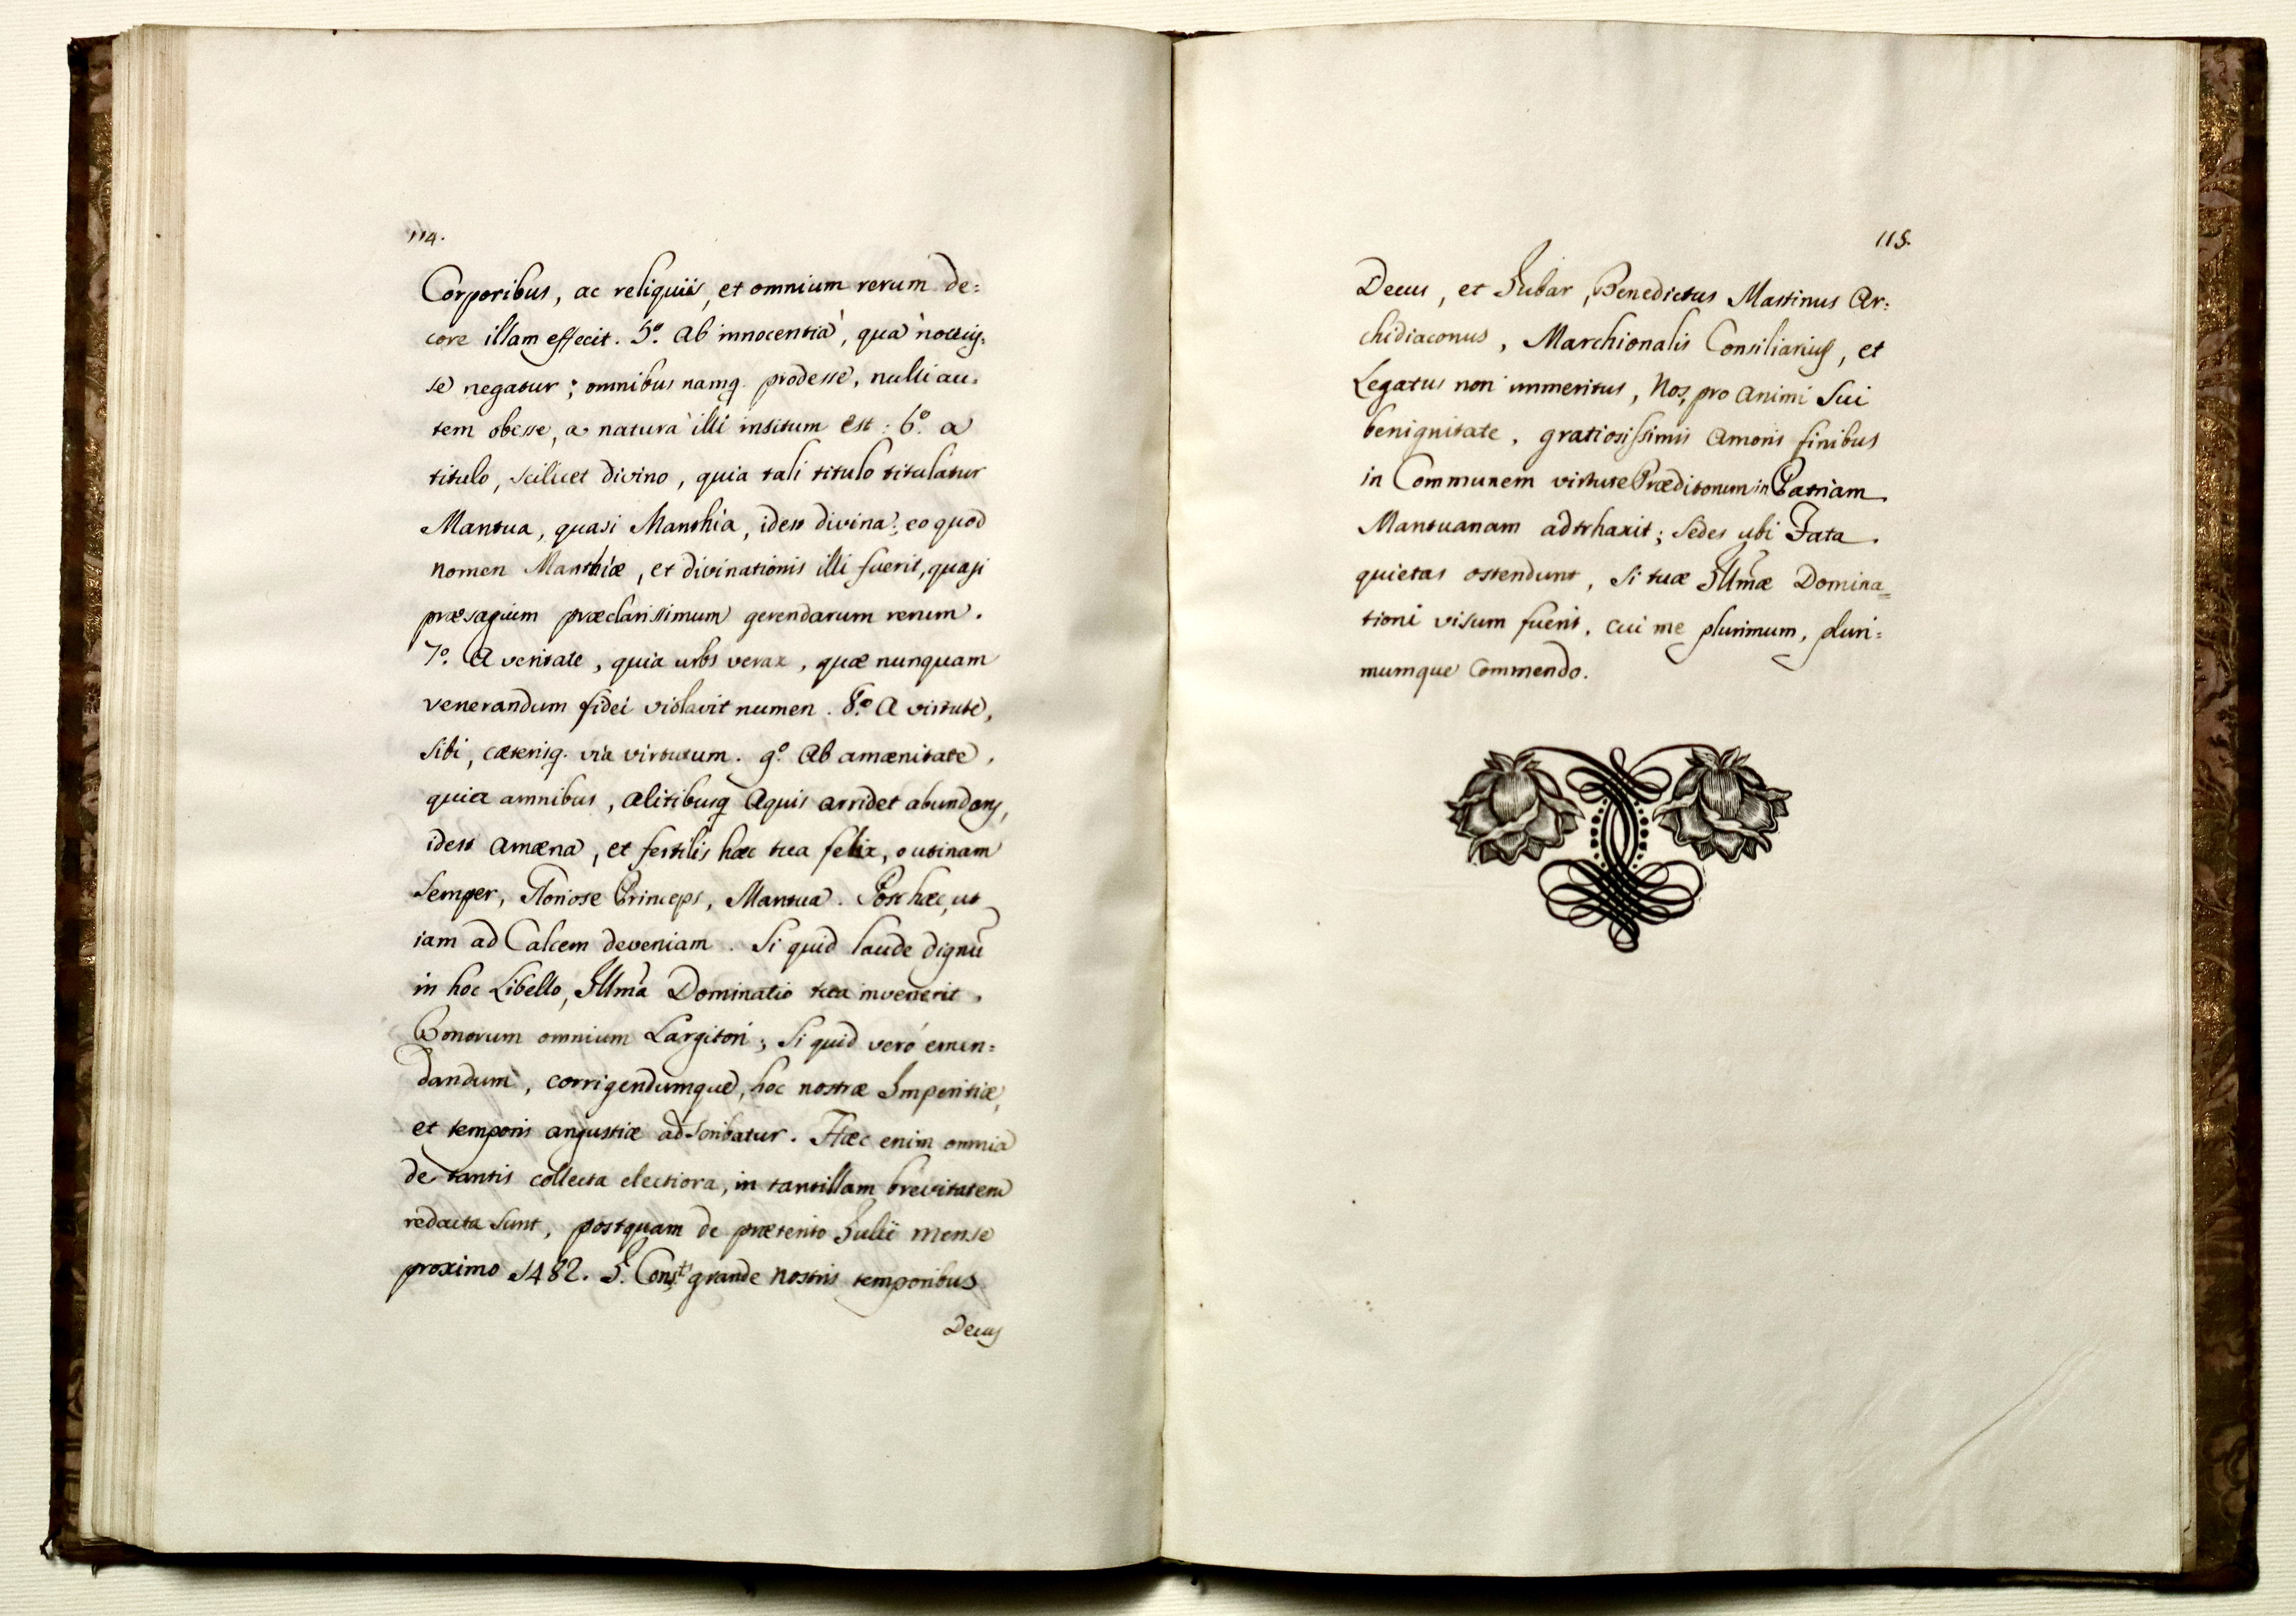 114.
Corporibus, ac reliquiis, et omnium rerum de=
core illam effecit. 5.º Ab innocentià, quà nocuis=
se negatur; omnibus namq. prodesse, nulli au=
tem obesse, a naturà illi insitum est: 6.º a
titulo, scilicet divino, quia tali titulo titulatur
Mantua, quasi Manthia, idest divina, eo quod
nomen Manthiæ, et divinationis illi fuerit, quasi
præsagium præclarissimum gerendarum rerum.
7.º A veritate, quia urbs verax, quæ nunquam
venerandum fidei violavit numen. 8.º A virtute,
sibi, cæterisq. via virtutum. 9.º Ab amænitate,
quia amnibus, alitibusq aquis arridet abundans,
idest amæna, et fertilis hæc tua felix, o utinam
semper, Gloriose Princeps, Mantua. Post hæc, ut
iam ad Calcem deveniam. Si quid laude dignū
in hoc Libello, Illm̃a Dominatio tua invenerit,
Bonorum omnium Largitori; Si quid verò emen=
dandum, corrigendumque, hoc nostræ Imperitiæ,
et temporis angustiæ adscribatur. Hæc enim omnia
de tantis collecta electiora, in tantillam brevitatem
redacta sunt, postquam de præterito Julii mense
proximo 1482. S. Const. grande nostris temporibus
Decus
115.
Decus, et Jubar, Benedictus Mastinus Ar=
chidiaconus, Marchionalis Consiliarius, et
Legatus non immeritus, Nos, pro animi sui
benignitate, gratiosissimis amoris finibus
in Communem virtute Præditorum in Patriam
Mantuanam adtrhaxit; Sedes ubi Fata
quietas ostendunt, si tuæ Illm̃æ Domina=
tioni visum fuerit, cui me plurimum, pluri=
mumque Commendo.